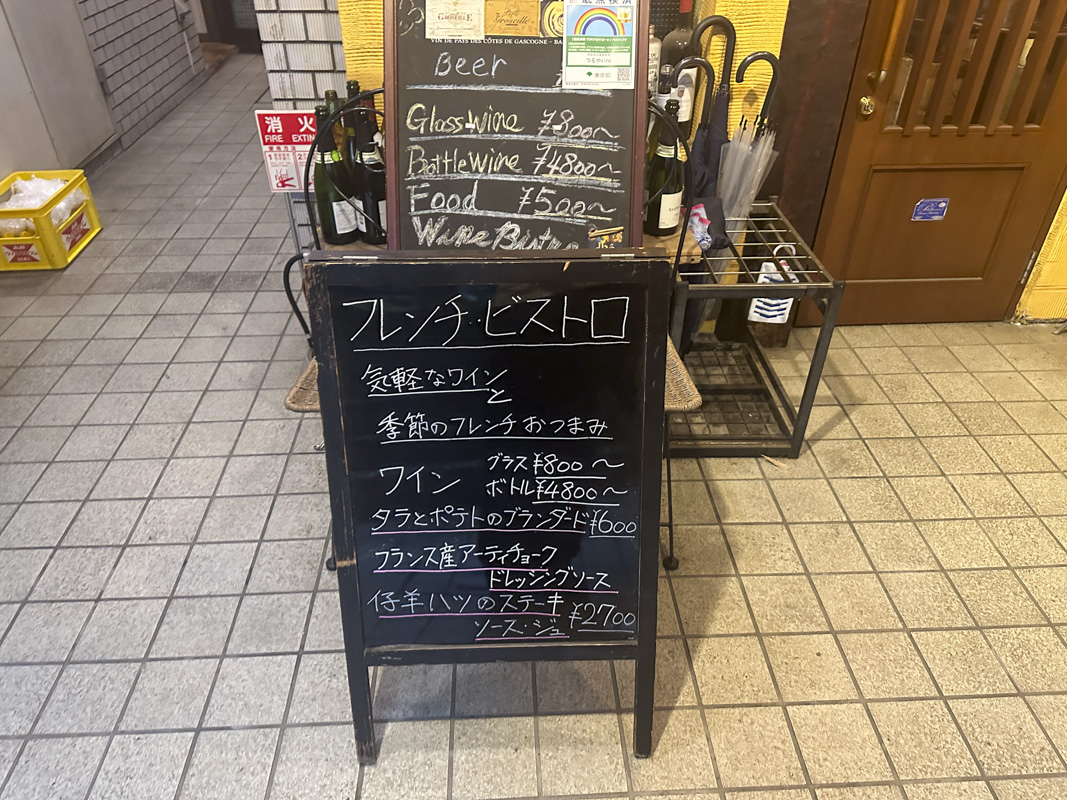 VIN DE PAYS DES CÔTES DE GASCOGNE - BA
Beer
Glass wine ¥800~
Bottle wine ¥4800~
Food ¥500~
Wine Bistro
消火
FIRE EXTIN
使用方法
フレンチ・ビストロ
気軽なワイン
と
季節のフレンチおつまみ
ワイン グラス ¥800~
ボトル ¥4800~
タラとポテトのブランダード ¥600
フランス産アーティチョーク
ドレッシングソース
仔羊ハツのステーキ ¥2700
ソース・ジュ